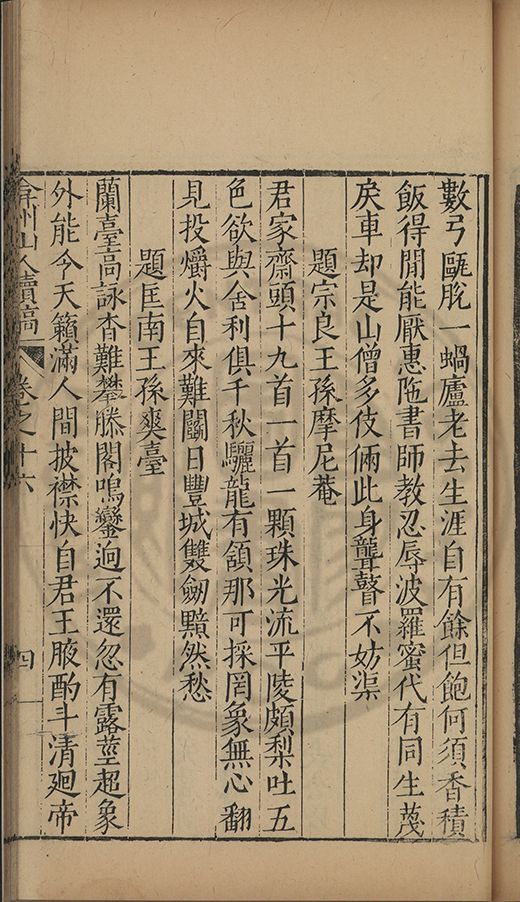 數弓甌脫一蝸廬老去生涯自有餘但飽何須香積
飯得閒能厭惠陁書師教忍辱波羅蜜代有同生蔑
戾車却是山僧多伎倆此身聾瞽不妨渠
題宗良王孫摩尼菴
君家齋頭十九首一首一顆珠光流平陵頗梨吐五
色欲與舍利俱千秋驪龍有頷那可採罔象無心翻
見投爝火自來難鬭日豐城雙劒黯然愁
題匡南王孫爽臺
蘭臺高詠杳難攀滕閣鳴鑾逈不還忽有露莖超象
外能令天籟滿人間披襟快自君王腋酌斗清廻帝
弇州山人續稿 卷之十六 四